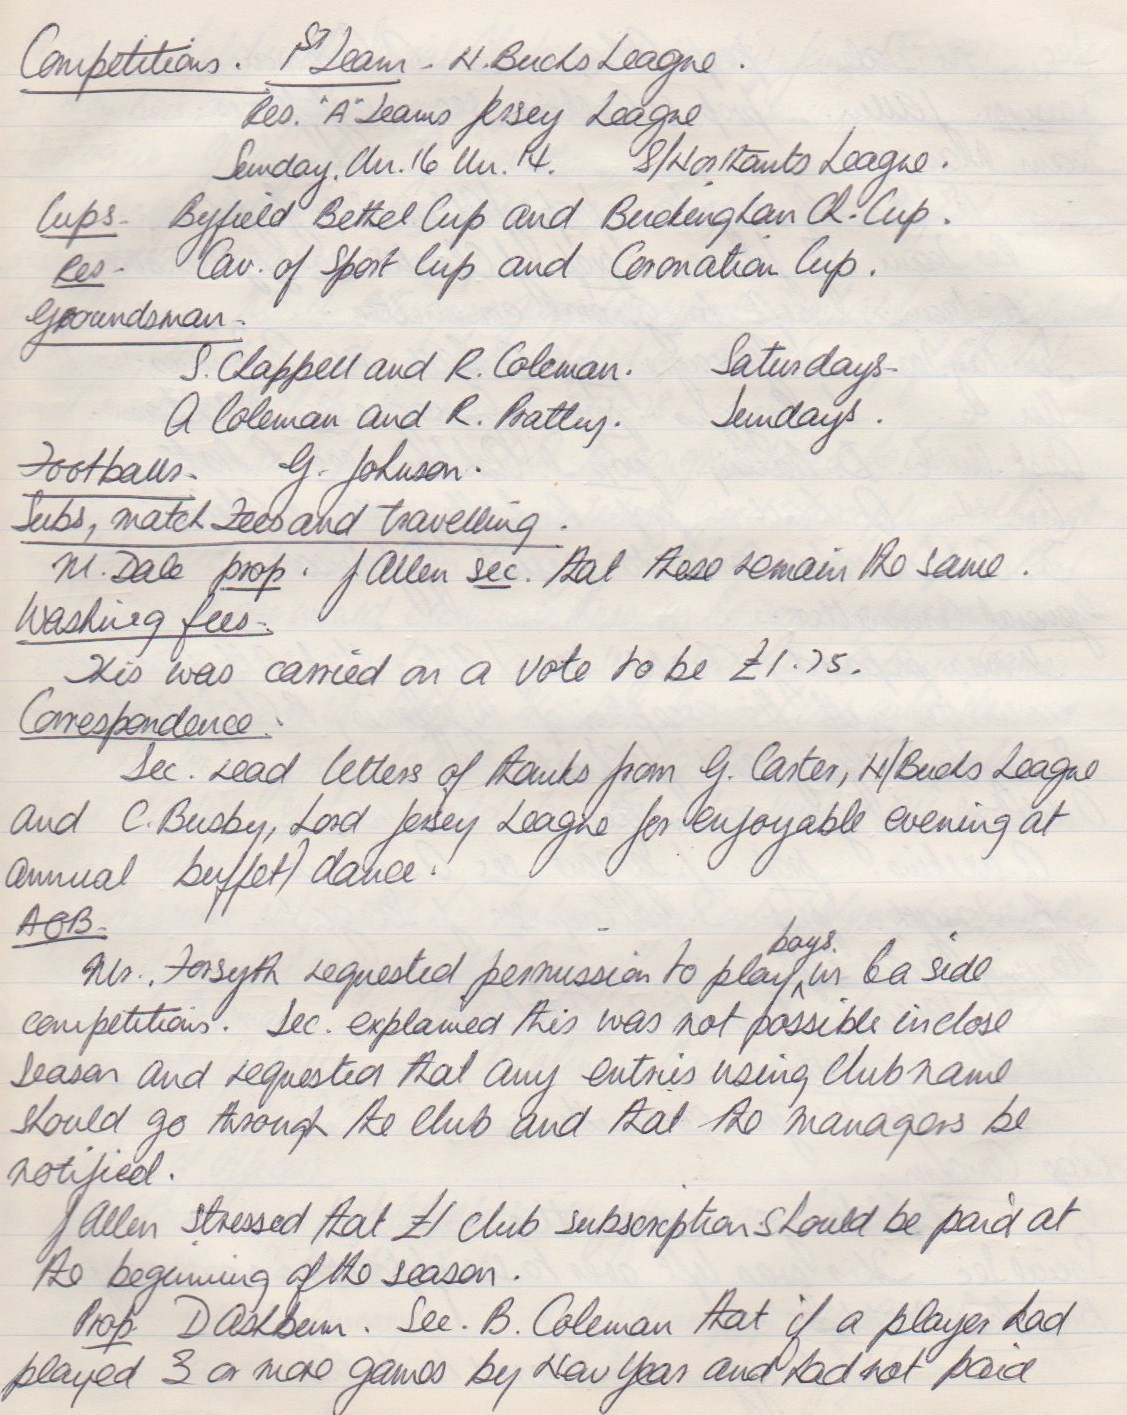 Competitions. 1st Team - N. Bucks League.
Res. "A" Teams Jersey League
Sunday. Un. 16 Un. 14. S/Northants League.
Cups - Byfield Bethel Cup and Buckingham Ch. Cup.
Res - Cav. of Sport Cup and Coronation Cup.
Groundsman -
S. Chappell and R. Coleman. Saturdays -
A Coleman and R. Pratley. Sundays.
Footballs - G. Johnson.
Subs, match Fees and travelling.
M. Dale prop. J Allen sec. that these remain the same.
Washing fees -
This was carried on a vote to be £1.75.
Correspondence:
Sec. read letters of thanks from G. Carter, N/Bucks League
and C. Busby, Lord Jersey League for enjoyable evening at
annual buffet/dance.
AOB -
Mr. Forsyth requested permission to play boys in 6 a side
competitions. Sec. explained this was not possible in close
season and requested that any entries using Club name
should go through the Club and that the managers be
notified.
J Allen stressed that £1 club subscription should be paid at
the beginning of the season.
Prop D Ashburn. Sec. B. Coleman that if a player had
played 3 or more games by New Year and had not paid